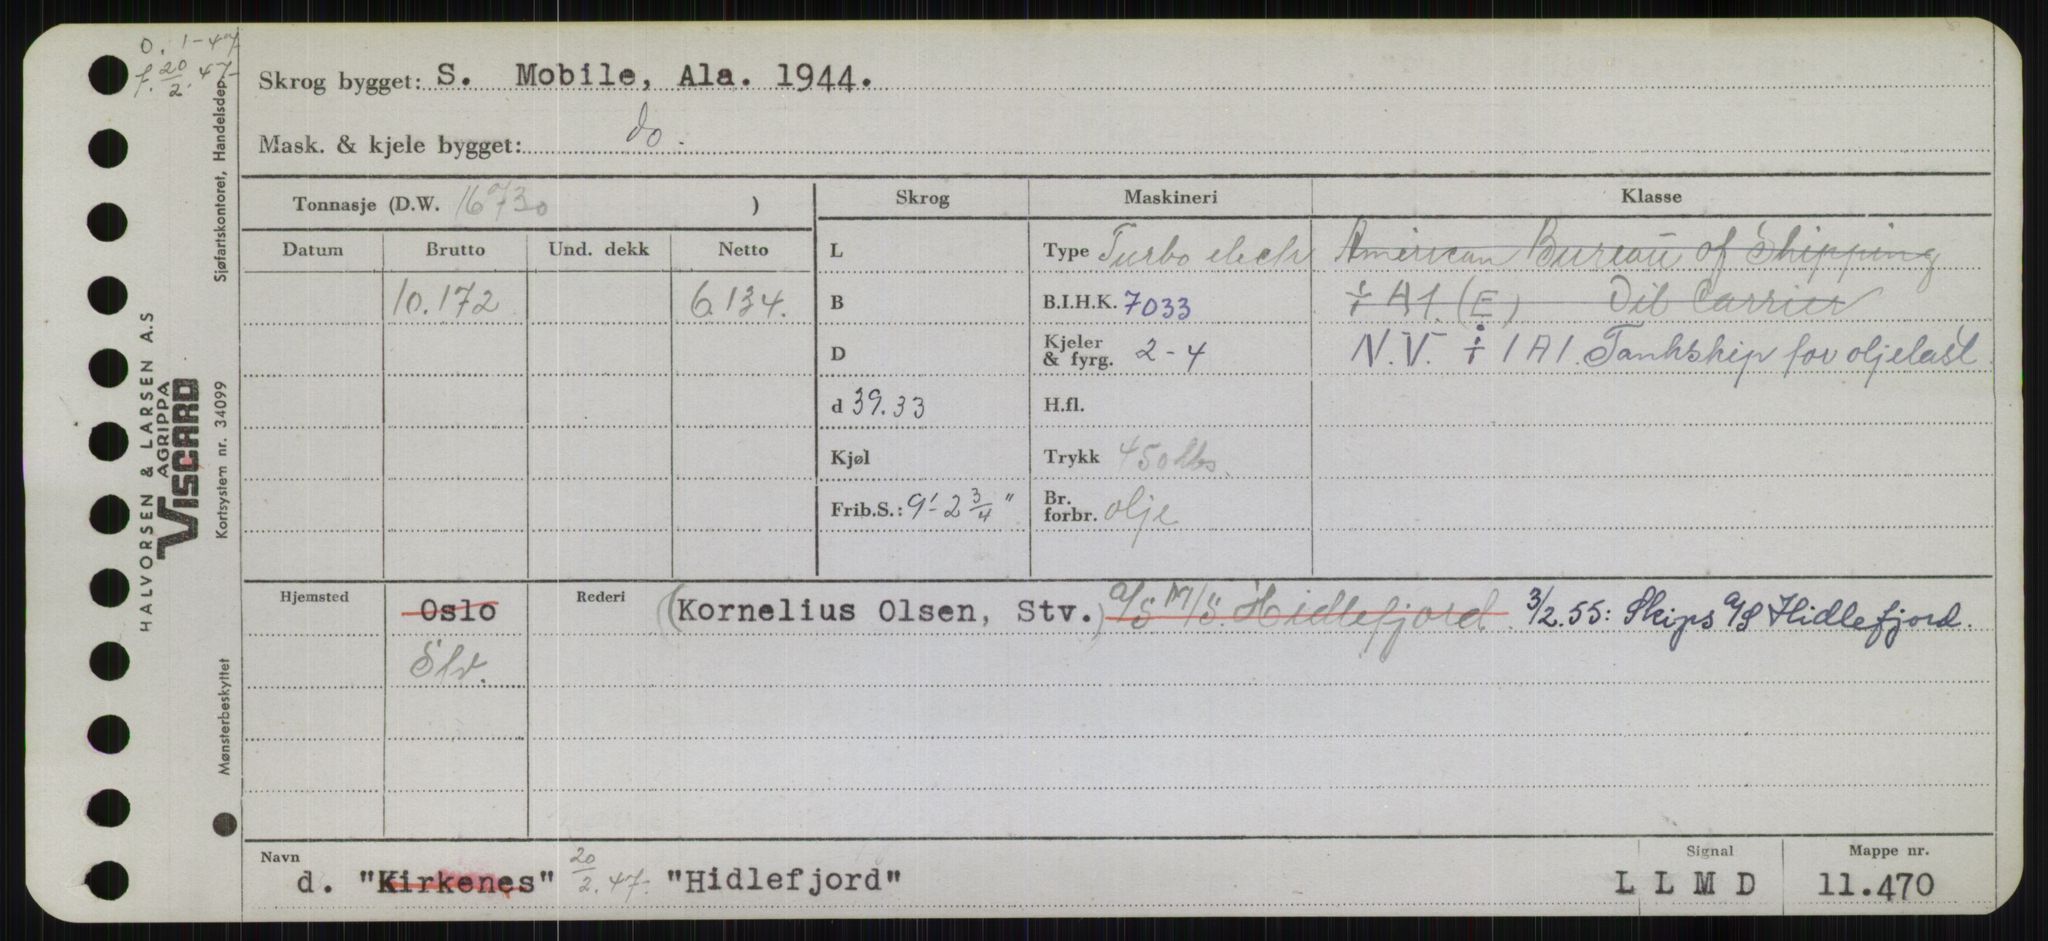 O. 1-47
f. 20/2. 47-
Skrog bygget: S. Mobile, Ala. 1944.
Mask. & kjele bygget: do.
Tonnasje (D.W. 16730 )
Skrog
Maskineri
Klasse
Datum
Brutto
Und. dekk
Netto
L
Type Turbo elektr
American Bureau of Shipping
10.172
6.134.
B
B.I.H.K. 7033
A1. (E) Oil Carrier
D
Kjeler & fyrg. 2-4
N.V. 1A1. Tankskip for oljelast.
d 39.33
H.fl.
Kjøl
Trykk 450 lbs.
Frib.S.: 9'-2 3/4"
Br. forbr. olje
Hjemsted
Oslo
Rederi
(Kornelius Olsen, Stv.) A/S M/S Hidlefjord. 3/2.55: Skips A/S Hidlefjord.
Slv.
Navn
d. "Kirkenes" 20/2.47- "Hidlefjord"
Signal
L L M D
Mappe nr.
11.470
HALVORSEN & LARSEN A.S
AGRIPPA
VISCARD
Mønsterbeskyttet Kortsystem nr. 34099 Sjøfartskontoret, Handelsdep.